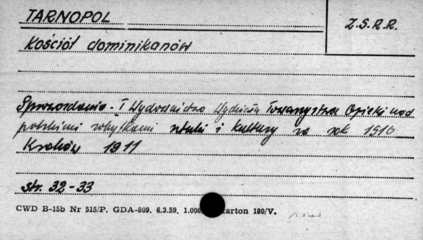 TARNOPOL
Z.S.R.R.
Kościół dominikanów
Sprawozdanie I Wydawnictwo Wydziału Towarzystwa Opieki nad
polskimi zabytkami sztuki i kultury za rok 1910
Kraków 1911
str. 32-33
CWD B-15b Nr 515/P. GDA-809. 6.3.59. 1.000 karton 180/V.